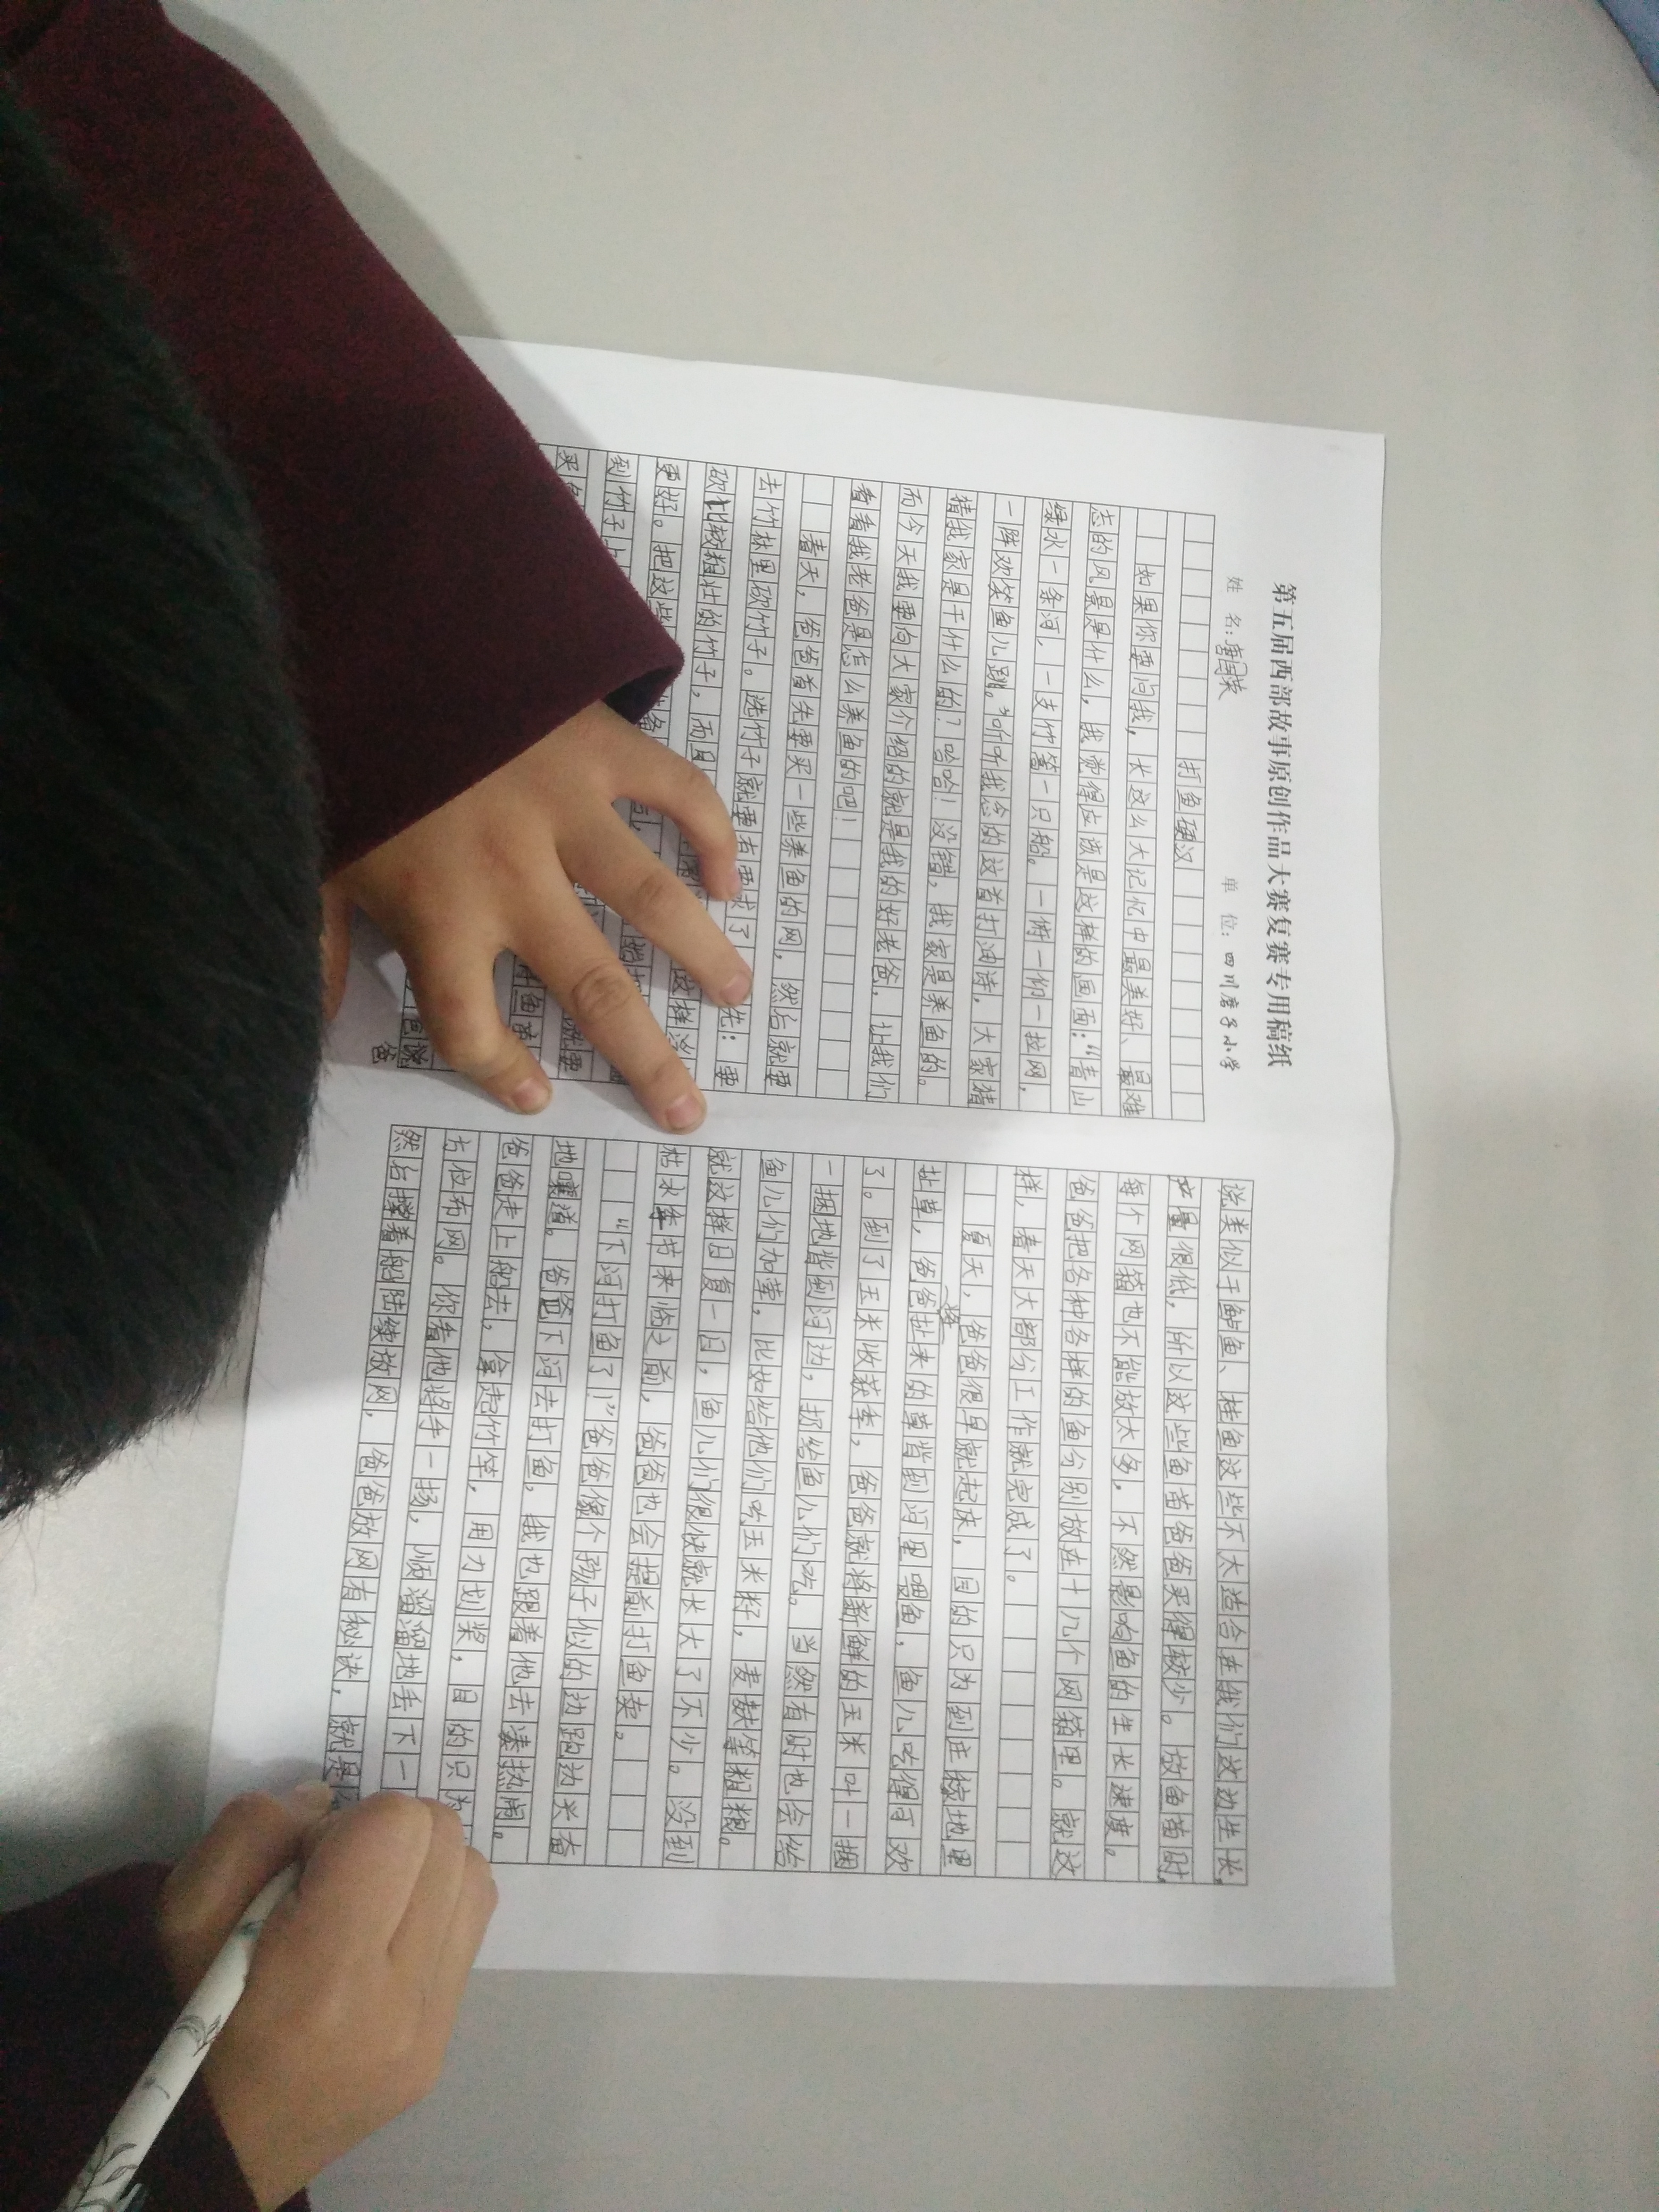 第五届西部故事原创作品大赛复赛专用稿纸
姓 名:唐国荣 单 位:四川磨子小学
打鱼硬汉
如果你要问我,长这么大记忆中最美好、最难
忘的风景是什么,我觉得应该是这样的画面:“青山
绿水一条河,一支竹篙一只船。一俯一仰一拉网,
一阵欢笑鱼儿跳。”听听我念的这首打油诗,大家猜
猜我家是干什么的?哈哈!没错,我家是养鱼的。
而今天我要向大家介绍的就是我的好老爸,让我们
看看我老爸是怎么养鱼的吧!
春天,爸爸首先要买一些养鱼的网,然后就要
去竹林里砍竹子。选竹子就要有要求了 先:要
砍比较粗壮的竹子,而且 这样
更好。把这些
到竹子 就要
买鱼
爸
说类似于鲈鱼、桂鱼这些不大适合在我们这边生长,
产量很低,所以这些鱼苗爸爸买得较少。放鱼苗时,
每个网箱也不能放太多,不然影响鱼的生长速度。
爸爸把各种各样的鱼分别放在十几个网箱里。就这
样,春天大部分工作就完成了。
夏天,爸爸很早就起床,目的只为到庄稼地里
扯草,爸爸扯来的草背到河里喂鱼,鱼儿吃得可欢
了。到了玉米收获季,爸爸就将新鲜的玉米叶一捆
一捆地背到河边,扔给鱼儿们吃。当然有时也会给
鱼儿们加荤,比如给他们吃玉米籽,麦麸等粗粮。
就这样日复一日,鱼儿们很快就长大了不少。没到
枯水季节来临之前,爸爸也会提前打鱼卖。
“下河打鱼了!”爸爸像个孩子似的边跑边兴奋
地嚷道。爸爸下河去打鱼,我也跟着他去凑热闹。
爸爸走上船去,拿起竹竿,用力划桨,目的只为
方位布网。你看他将手一扬,顺溜溜地丢下一
然后撑着船陆续放网,爸爸放网有秘诀,就是